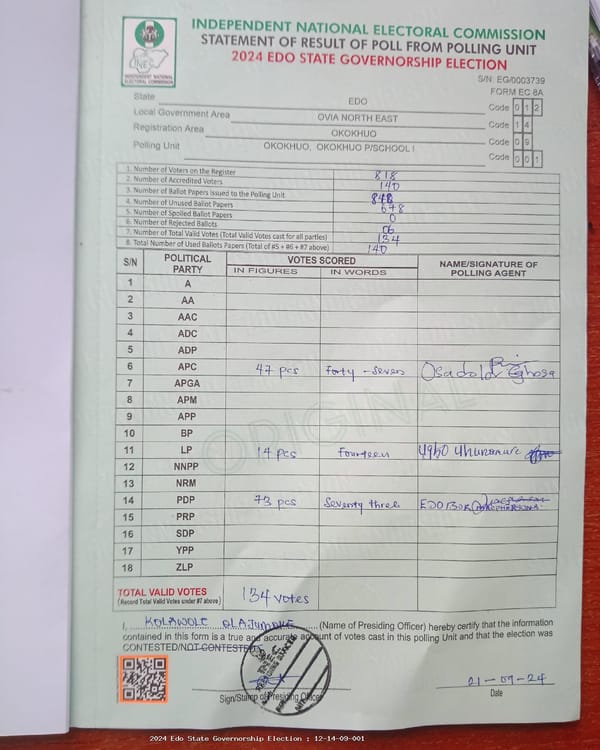 INDEPENDENT NATIONAL ELECTORAL COMMISSION
STATEMENT OF RESULT OF POLL FROM POLLING UNIT
2024 EDO STATE GOVERNORSHIP ELECTION
INEC
INDEPENDENT NATIONAL
ELECTORAL COMMISSION
S/N: EG/0003739
FORM EC 8A
State EDO Code 0 1 2
Local Government Area OVIA NORTH EAST Code 1 4
Registration Area OKOKHUO Code 0 9
Polling Unit OKOKHUO, OKOKHUO P/SCHOOL I Code 0 0 1
1. Number of Voters on the Register 818
2. Number of Accredited Voters 140
3. Number of Ballot Papers Issued to the Polling Unit 848
4. Number of Unused Ballot Papers 678
5. Number of Spoiled Ballot Papers 0
6. Number of Rejected Ballots 06
7. Number of Total Valid Votes (Total Valid Votes cast for all parties) 134
8. Total Number of Used Ballots Papers (Total of #5 + #6 + #7 above) 140
S/N POLITICAL PARTY VOTES SCORED NAME/SIGNATURE OF POLLING AGENT
IN FIGURES IN WORDS
1 A
2 AA
3 AAC
4 ADC
5 ADP
6 APC 47 pcs forty-seven Osadolor Eghosa
7 APGA
8 APM
9 APP
10 BP
11 LP 14 pcs Fourteen
12 NNPP
13 NRM
14 PDP 73 pcs Seventy three
15 PRP
16 SDP
17 YPP
18 ZLP
ORIGINAL
TOTAL VALID VOTES 134 votes
(Record Total Valid Votes under #7 above)
I, KOLAWOLE OLAJUMOKE (Name of Presiding Officer) hereby certify that the information
contained in this form is a true and accurate account of votes cast in this polling Unit and that the election was
CONTESTED/NOT CONTESTED
Sign/Stamp of Presiding Officer
21-09-24
Date
2024 Edo State Governorship Election : 12-14-09-001